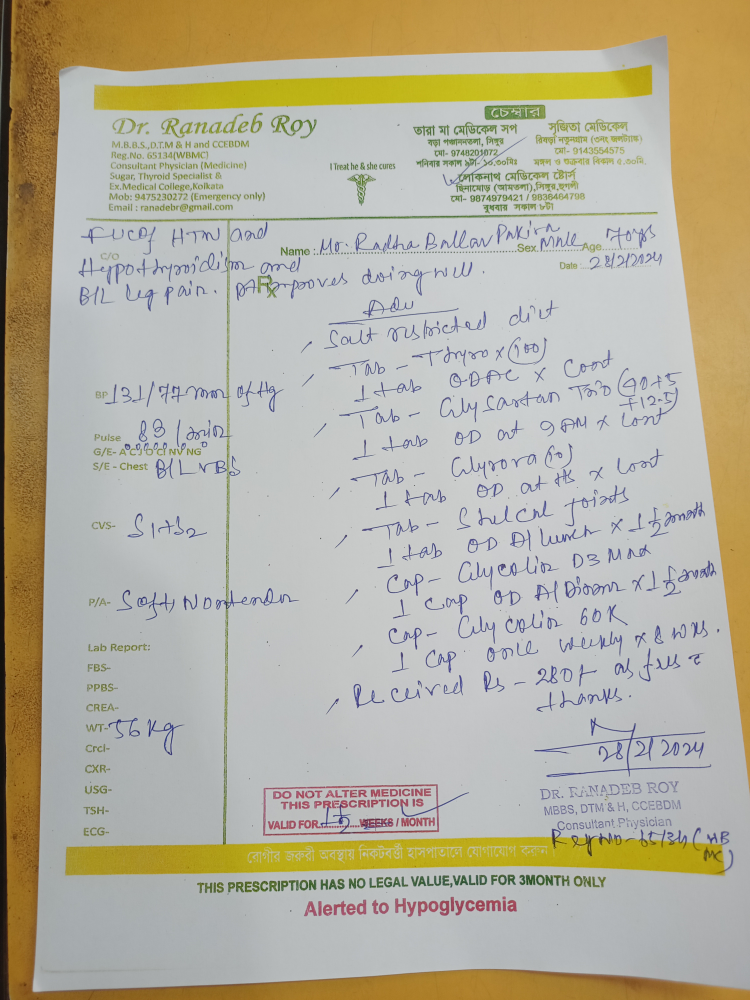 চেম্বার
Dr. Ranadeb Roy
M.B.B.S.,D.T.M & H and CCEBDM
Reg.No. 65134(WBMC)
Consultant Physician (Medicine)
Sugar, Thyroid Specialist &
Ex.Medical College,Kolkata
Mob: 9475230272 (Emergency only)
Email : ranadebr@gmail.com
I Treat he & she cures
তারা মা মেডিকেল সপ
বড়া পঞ্চাননতলা, সিঙ্গুর
মো- 9748201072
শনিবার সকাল
সুজিতা মেডিকেল
রিষড়া নতুনগ্রাম
মো- 9143554575
মঙ্গল ও শুক্রবার বিকাল ৫.৩০মি.
লোকনাথ মেডিকেল ষ্টোর্স
ছিনামোড় (আমতলা),সিঙ্গুর,হুগলী
মো- 9874979421 / 9836464798
বুধবার সকাল ৮টা
Name : Mr. Radha Ballav Pakira Sex Male Age 70 yrs
Date 28/2/2024
C/O
FUC of HTN and
Hypothyroidism and
B/L leg pain.
Rx
improves doing well.
Adv
Salt restricted diet
Tab - Thyrox (100)
1 tab ODAC x Cont
Tab - Glysartan Trio (40+5
+12.5)
1 tab OD at 9AM x Cont
Tab - Glyrova (10)
1 tab OD at HS x Cont
Tab - Shelcal Joints
1 tab OD A/Lunch x 1 1/2 month
Cap - Glycolin D3 Max
1 Cap OD A/Dinner x 1 1/2 month
Cap - Glycolin 60K
1 Cap once weekly x 8 wks.
Received Rs - 280/- as fees c
thanks.
28/2/2024
BP 131/77 mm of Hg
Pulse 83/min
G/E- A C J O CI NV NG
S/E - Chest B/L VBS
CVS- S1+S2
P/A- Soft, Nontender
Lab Report:
FBS-
PPBS-
CREA-
WT- 56 Kg
Crcl-
CXR-
USG-
TSH-
ECG-
DO NOT ALTER MEDICINE
THIS PRESCRIPTION IS
VALID FOR 1 1/2 WEEKS / MONTH
DR. RANADEB ROY
MBBS, DTM & H, CCEBDM
Consultant Physician
Reg No - 65134 (WB
MC)
রোগীর জরুরী অবস্থায় নিকটবর্তী হাসপাতালে যোগাযোগ করুন
THIS PRESCRIPTION HAS NO LEGAL VALUE,VALID FOR 3MONTH ONLY
Alerted to Hypoglycemia